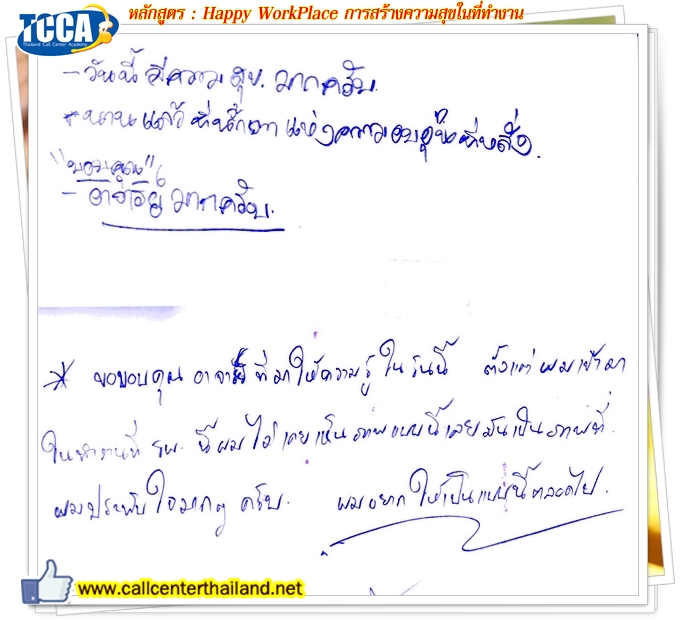 หลักสูตร : Happy WorkPlace การสร้างความสุขในที่ทำงาน
TCCA
Thailand Call Center Academy
- วันนี้ มีความสุข. มากครับ.
- นานแล้ว ที่ แห่งความอบอุ่น
"ขอบคุณ"
- อาจารย์ มากครับ.
* ขอขอบคุณ อาจารย์ ที่มาให้ความรู้ ในวันนี้ ตั้งแต่ ผมเข้ามา
ในทำงานที่ รพ. นี้ ผมไม่เคยเห็นภาพแบบนี้เลย มันเป็นภาพที่
ผมประทับใจมากๆ ครับ. ผมอยากให้เป็นแบบนี้ตลอดไป.
www.callcenterthailand.net